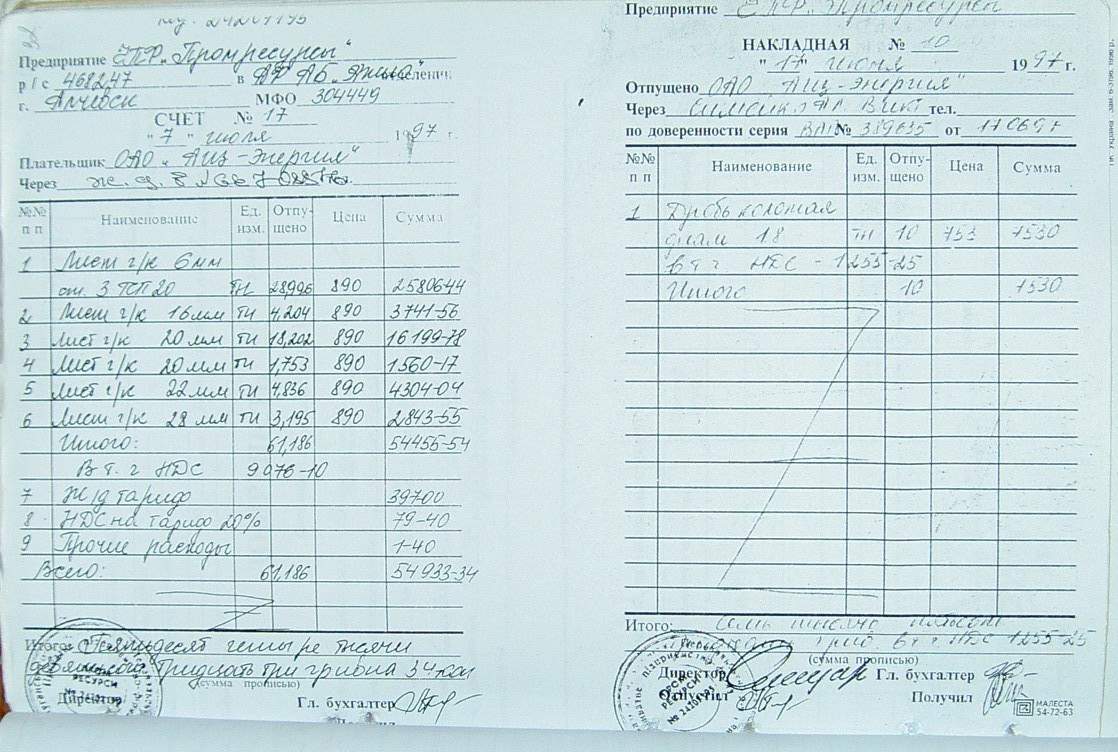 Предприятие ЧПФ „Промресурсы"
р/с 468247 в
г. Алчевск МФО 304449
СЧЕТ № 17
" 7 " июля 1997 г.
Плательщик ОАО „Аиц-Энергия"
Через ж. д.
№№ п п Наименование Ед. изм. Отпущено Цена Сумма
1 Лист г/к 6мм
3 ПСП 20 тн 28,996 890 25806-44
2 Лист г/к 16мм тн 4,204 890 3741-56
3 Лист г/к 20мм тн 18,202 890 16199-78
4 Лист г/к 20мм тн 1,753 890 1560-17
5 Лист г/к 22мм тн 4,836 890 4304-04
6 Лист г/к 28мм тн 3,195 890 2843-55
Итого: 61,186 54455-54
В т. ч НДС 9076-10
7 Ж/д тариф 397-00
8 НДС на тариф 20% 79-40
9 Прочие расходы 1-40
Всего: 61,186 54933-34
Итого: Пятьдесят четыре тысячи
девятьсот тридцать три гривна 34 коп
(сумма прописью)
Директор Гл. бухгалтер
Предприятие ЧПФ „Промресурсы
НАКЛАДНАЯ № 10
" 17 " июня 1997 г.
Отпущено ОАО „Аиц-Энергия"
Через тел.
по доверенности серия № 389635 от 170697
№№ п п Наименование Ед. изм. Отпущено Цена Сумма
1 Дробь колотая
диам 1.8 тн 10 753 7530
в т ч НДС - 1255-25
Итого 10 7530
Итого: Семь тысяч пятьсот
тридцать грив. в т ч НДС 1255-25
(сумма прописью)
Директор Гл. бухгалтер
Отпустил Получил
МАЛЕСТА
54-72-63